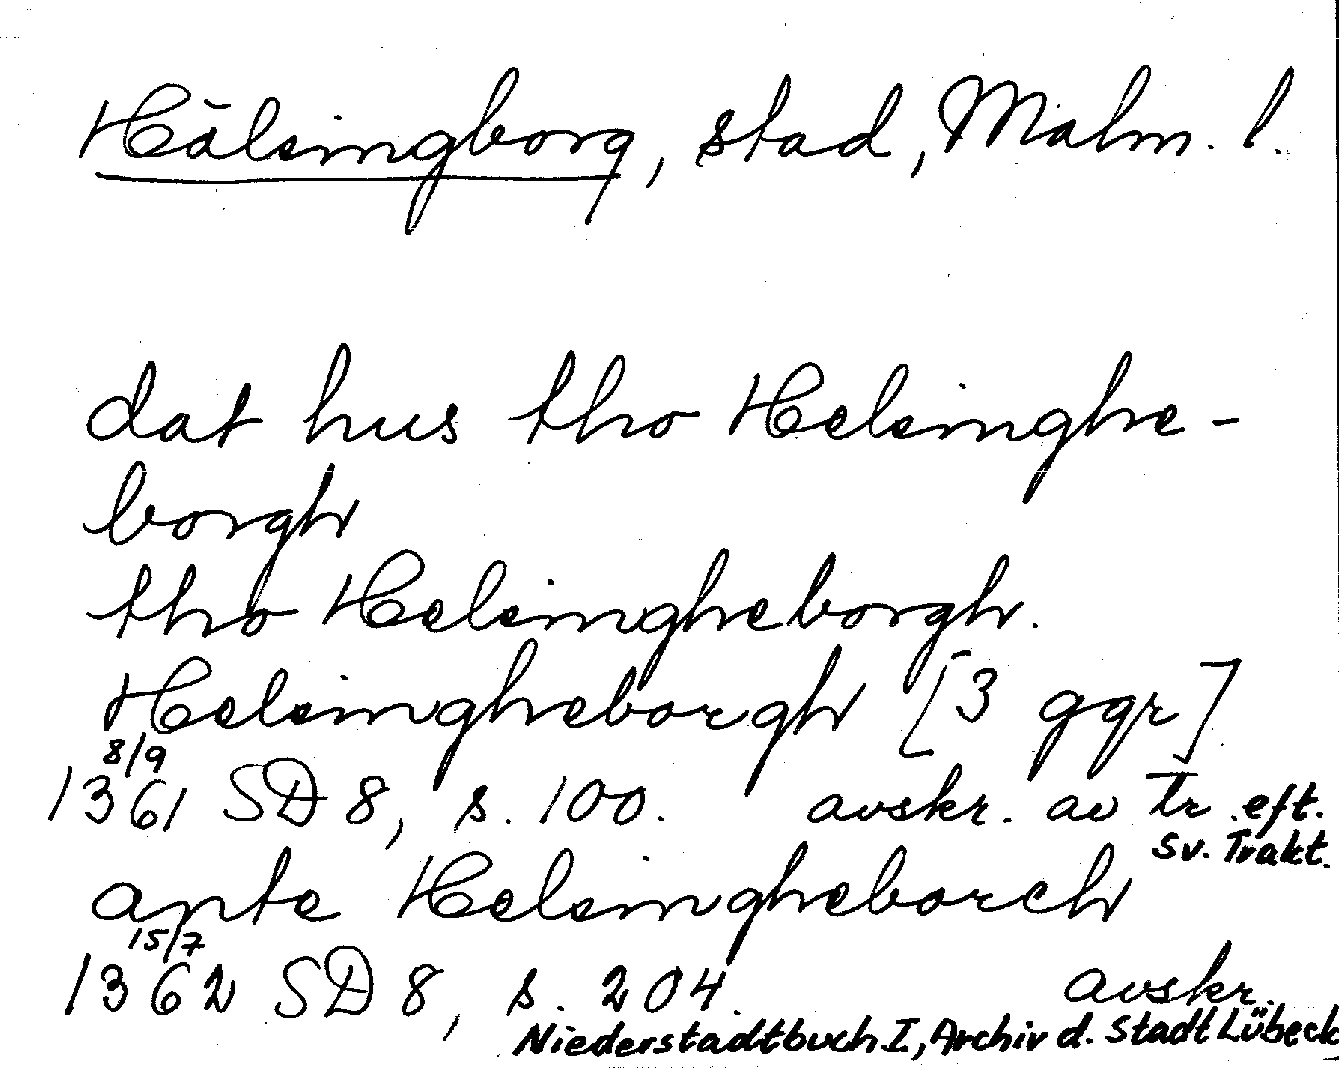 Hälsingborg, stad, Malm. l.
dat hus tho Helsinghe-
borgh
tho Helsingheborgh.
Helsingheborgh [3 ggr]
8/9
1361 SD 8, s. 100. avskr. av Tr eft.
Sv. Trakt.
ante Helsingheborch
15/7
1362 SD 8, s. 204. avskr.
Niederstadtbuch I, Archiv d. Stadt Lübeck